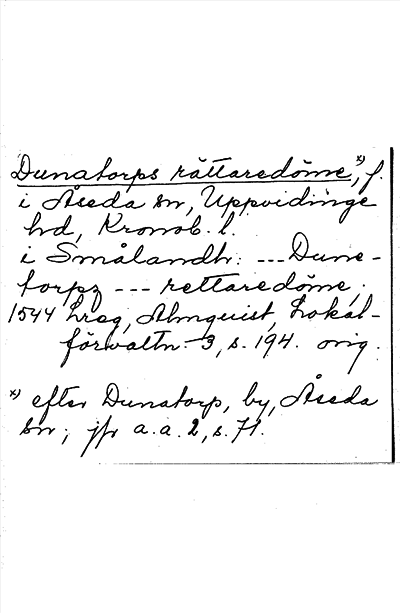 Dunatorps rättaredöme,*) f.
i Åseda sn, Uppvidinge
hd, Kronob. l.
i Smålandh: --- Dune-
torpz --- rettaredöme,
1544 Lreg, Almquist, Lokal-
förvaltn. 3, s. 194. orig.
*) efter Dunatorp, by, Åseda
sn; jfr a.a. 2, s. 71.